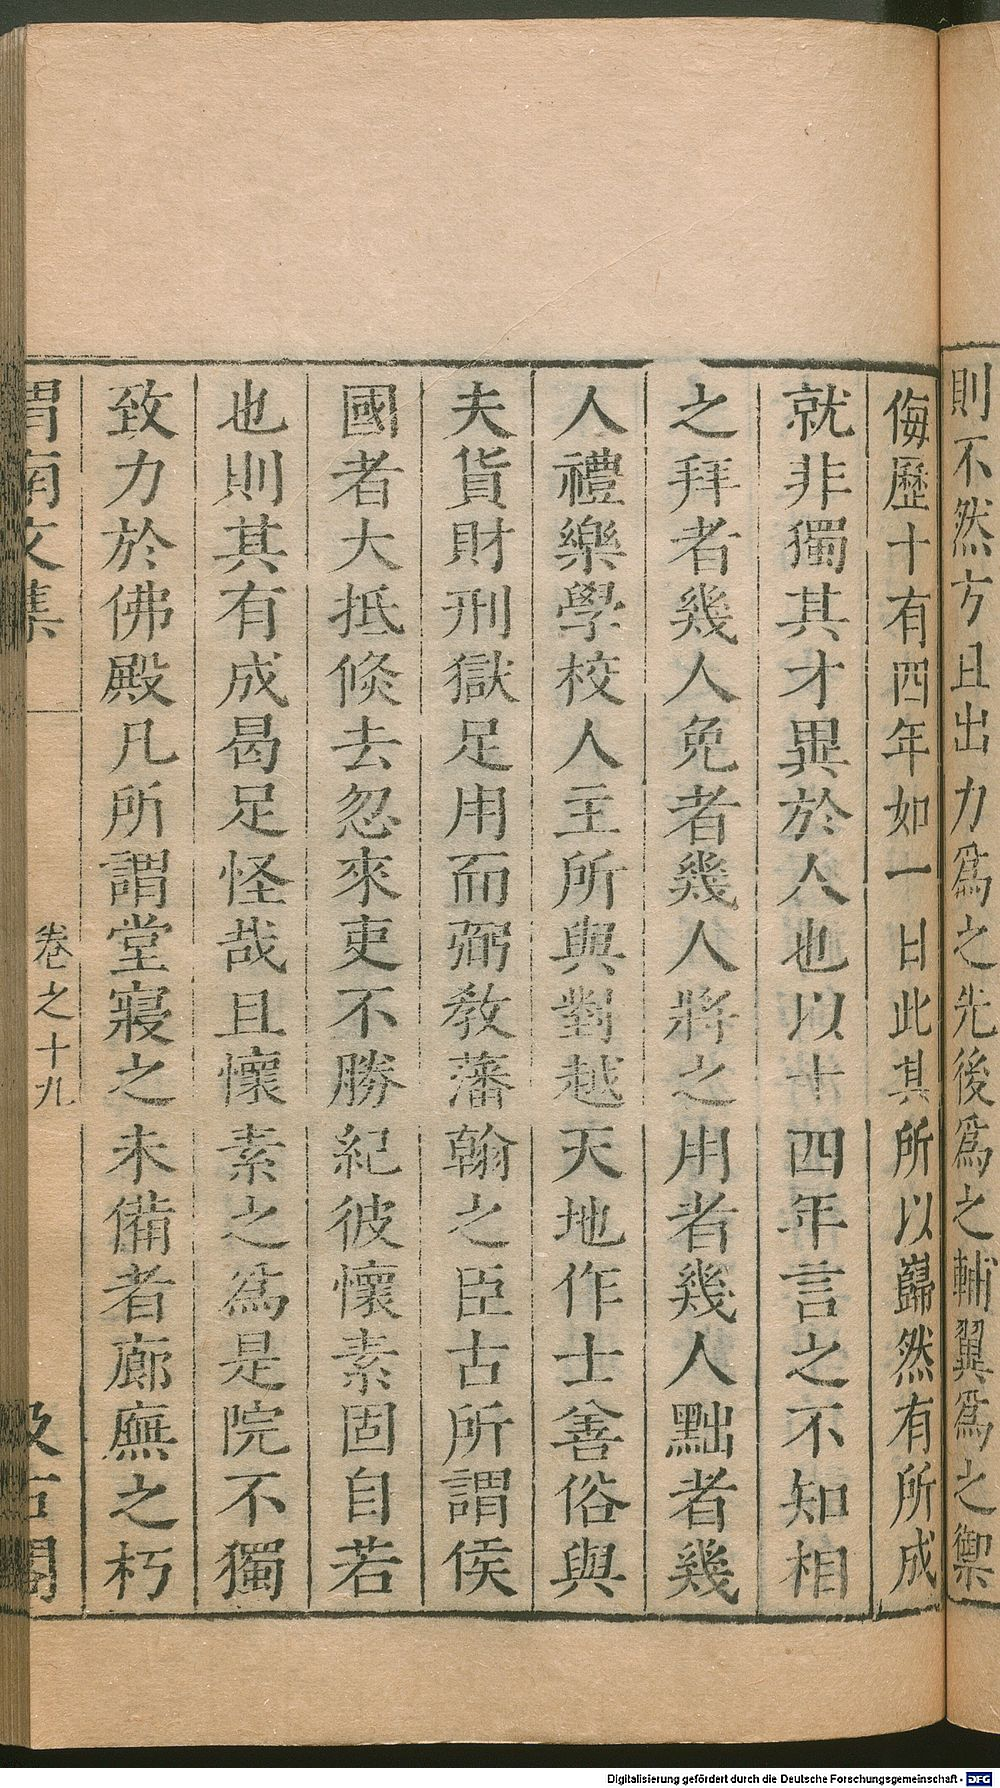 則不然方且出力爲之先後爲之輔翼爲之禦
侮歷十有四年如一日此其所以巋然有所成
就非獨其才異於人也以十四年言之不知相
之拜者幾人免者幾人將之用者幾人黜者幾
人禮樂學校人主所與對越天地作士善俗與
夫貨財刑獄足用而弼教藩翰之臣古所謂侯
國者大抵倐去忽來吏不勝紀彼懷素固自若
也則其有成曷足怪哉且懷素之爲是院不獨
致力於佛殿凡所謂堂寢之未備者廊廡之朽
渭南文集 卷之十九 汲古閣
Digitalisierung gefördert durch die Deutsche Forschungsgemeinschaft - DFG